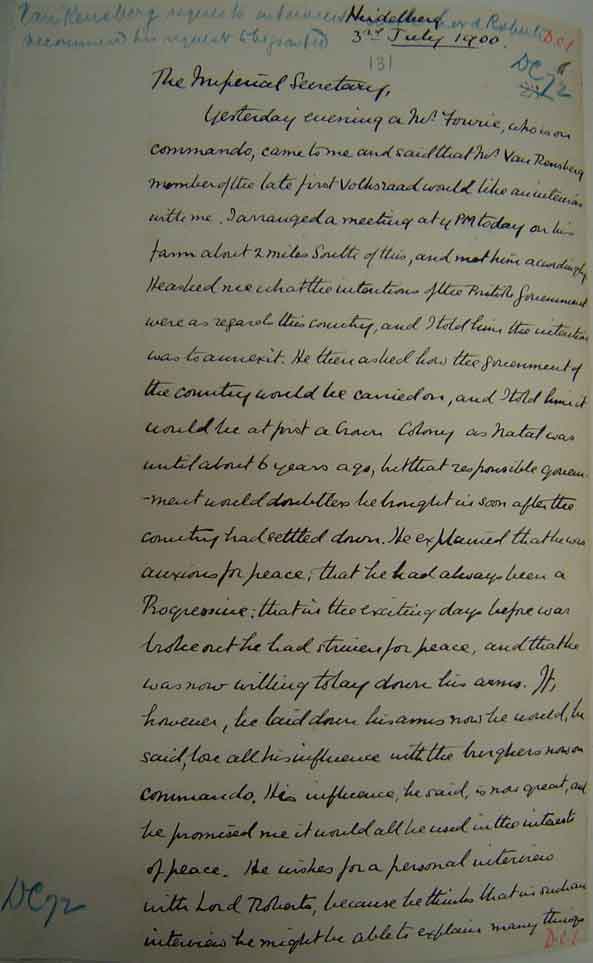 Van Rensberg requests interview Lord Roberts
recommend his request be granted
Heidelberg
3rd July 1900.
131
D.C.1
DC72
The Imperial Secretary,
Yesterday evening a Mr. Fourie, who is on
commando, came to me and said that Mr. Van Rensberg
member of the late first Volksraad would like an interview
with me. I arranged a meeting at 4 PM today on his
farm about 2 miles South of this, and met him accordingly
He asked me what the intentions of the British Government
were as regards this country, and I told him the intention
was to annex it. He then asked how the Government of
the country would be carried on, and I told him it
would be at first a Crown Colony as Natal was
until about 6 years ago, but that responsible govern-
-ment would doubtless be brought in soon after the
country had settled down. He explained that he was
anxious for peace; that he had always been a
Progressive; that in the exciting days before war
broke out he had striven for peace, and that he
was now willing to lay down his arms. If,
however, he laid down his arms now he would, he
said, lose all his influence with the burghers now on
commando. His influence, he said, is now great, and
he promised me it would all be used in the interests
of peace. He wishes for a personal interview
with Lord Roberts, because he thinks that in such an
interview he might be able to explain many things
DC72